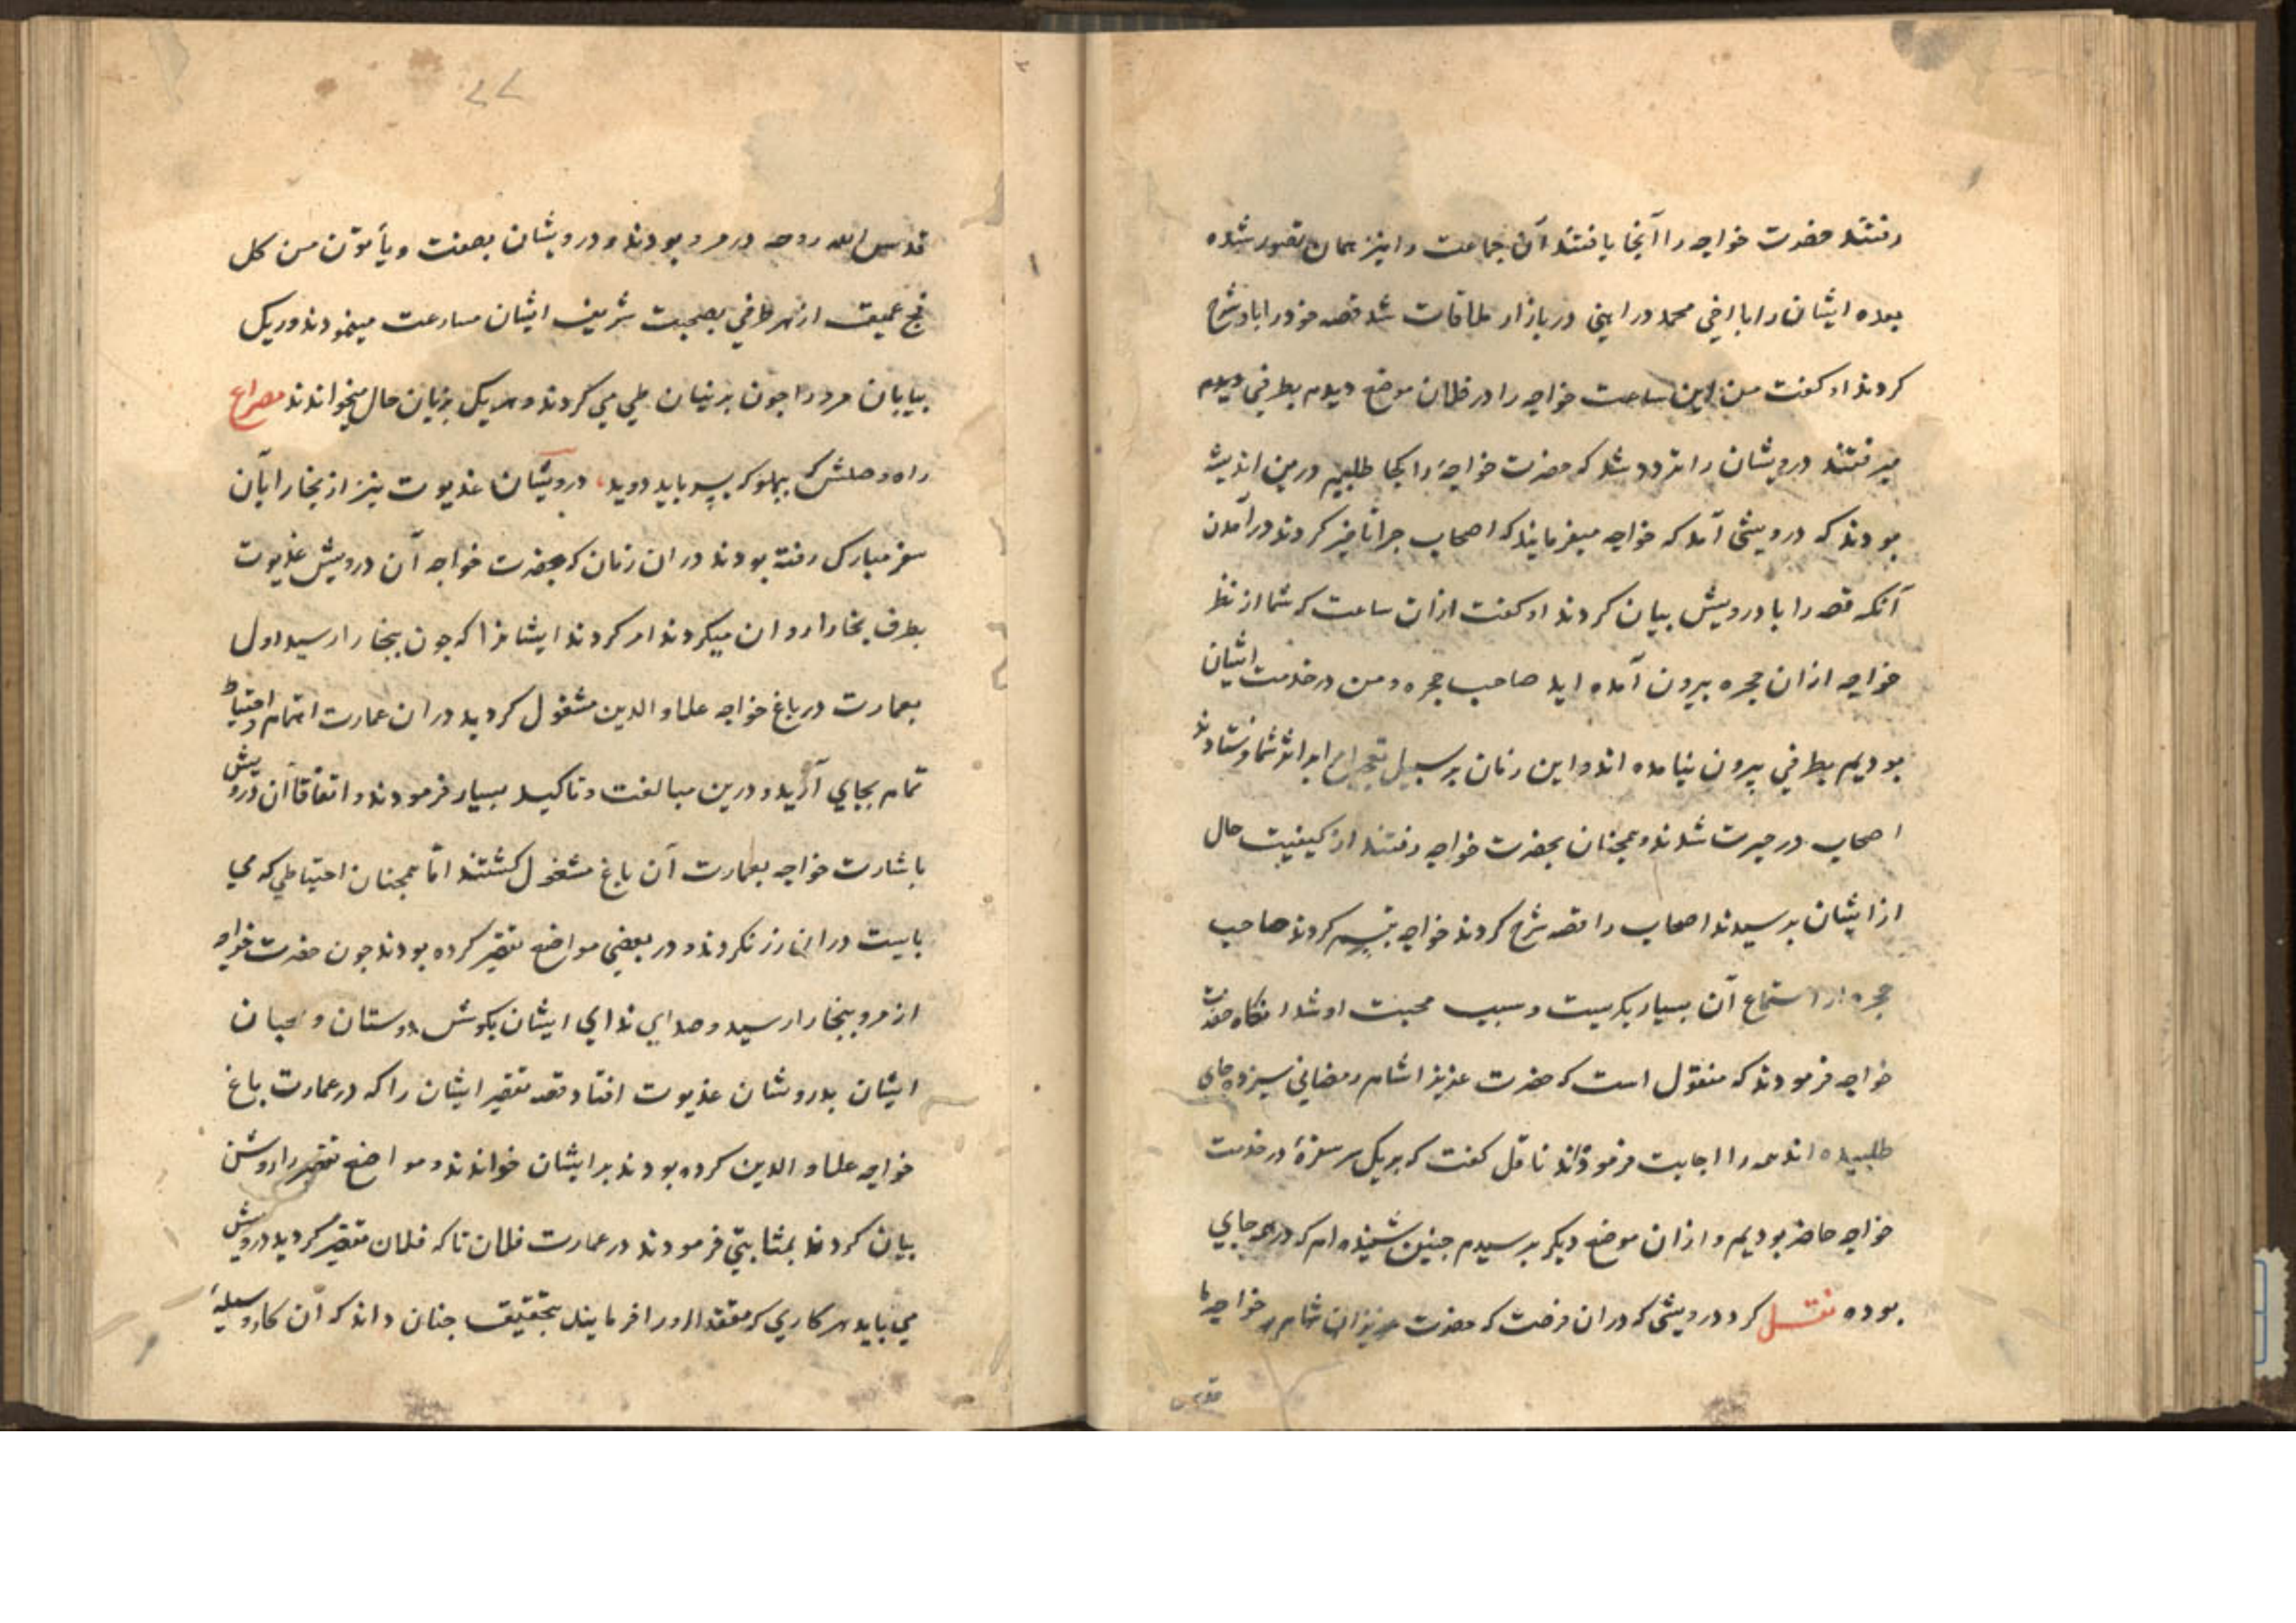 رفتند حضرت خواجه را آنجا یافتند آن جماعت را نیز همان تصور شده
بوده ایشان را با اخی محمد در آهنی در بازار ملاقات شد قصه خود را با او شرح
کردند او گفت من این ساعت خواجه را در فلان موضع دیدم بطرفی دیدم
میرفتند درویشان را تردد شد که حضرت خواجه را کجا طلبیم درین اندیشه
بودند که درویشی آمد که خواجه میفرمایند که اصحاب چرا تاخیر کردند در آمدن
آنکه قصه را با درویش بیان کردند او گفت ازان ساعت که شما از نظر
خواجه ازان حجره بیرون آمده اید صاحب حجره و من در خدمت ایشان
بودیم بطرفی بیرون نیامده اند و این زمان بر سبیل تعجیل مرا بر اثر شما فرستادند
اصحاب در حیرت شدند و همچنان بحضرت خواجه رفتند از کیفیت حال
از ایشان پرسیدند اصحاب را قصه شرح کردند خواجه تبسم کردند صاحب
حجره از استماع آن بسیار بگریست و سبب محبت او شد انگاه حضرت
خواجه فرمودند که منقول است که حضرت عزیزان را شام رمضانی سیزده جای
طلبیده اند همه را اجابت فرموده‌اند ناقل گفت که بر یک سر سفره در خدمت
خواجه حاضر بودیم و ازان موضع دیگر پرسیدم چنین شنیده ام که در همه جایی
بوده نقل کرد درویشی که دران فرصت که حضرت خواجه ما
قدس
۲۷
قدس الله روحه در مرو بودند و درویشان بصفت ویأتون من کل
فج عمیق از هر طرفی بصحبت شریف ایشان مسارعت مینمودند و ریک
بیابان مرو را چون پرنیان طی می کردند و هر یک بزبان حال میخواندند مصراع
راه وصلش که بپهلو که بسر باید دوید درویشان غذیوت نیز از بخارا بآن
سفر مبارک رفته بودند دران زمان که حضرت خواجه آن درویش غذیوت
بطرف بخارا روان میکردند امر کردند ایشانرا که چون ببخارا رسید اول
بعمارت در باغ خواجه علاو الدین مشغول گردید دران عمارت اهتمام و احتیاط
تمام بجای آرید و درین مبالغت و تاکید بسیار فرمودند و اتفاقا آن درویش
باشارت خواجه بعمارت آن باغ مشغول گشتند اما همچنان احتیاطی که می
بایست دران رز نکردند و در بعضی مواضع تقصیر کرده بودند چون حضرت خواجه
از مرو ببخارا رسید و صدای ندای ایشان بگوش دوستان و محبان
ایشان بدرویشان غذیوت افتاد قصه تقصیر ایشان را که در عمارت باغ
خواجه علاو الدین کرده بودند بر ایشان خواندند و مواضع تقصیر را روشن
بیان کردند بمثابتی فرمودند در عمارت فلان تاک فلان تقصیر کردید درویش
می باید هر کاری که مقتدا او را فرمایند بتحقیق چنان داند که آن کار وسیلهٔ